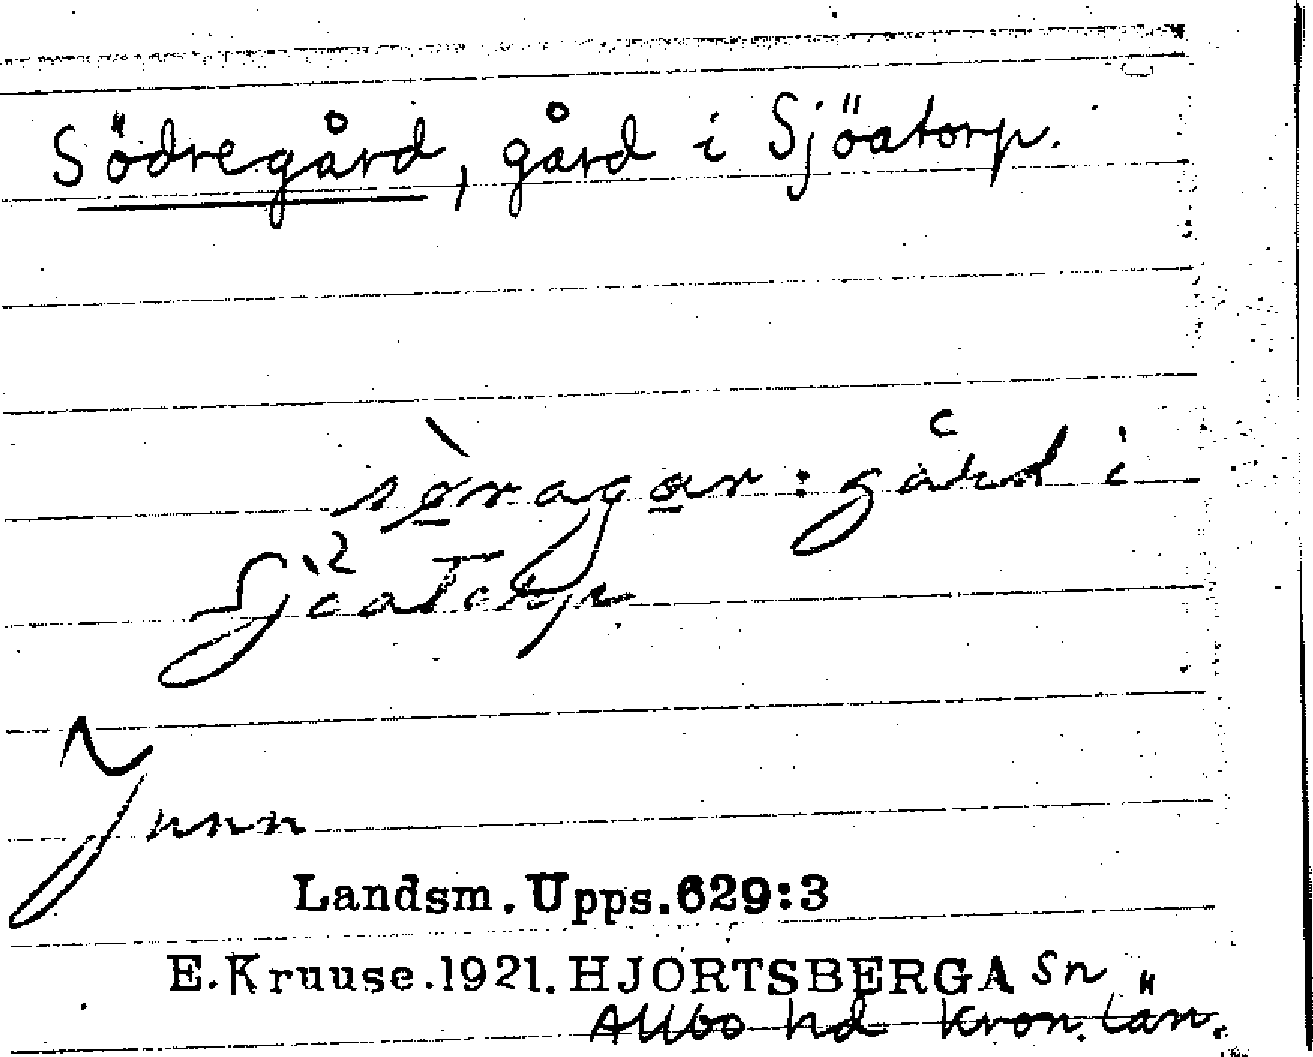 Södregård, gård i Sjöatorp.
søragar : gård i
Sjöatorp
Landsm. Upps. 629:3
E. Kruuse. 1921. HJORTSBERGA Sn
Allbo hd Kron. län.